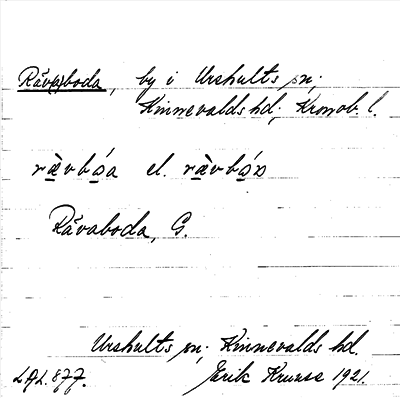 Råv(a)boda, by i Urshults sn;
Kinnevalds hd; Kronob. l.
ràvbóa el. ràvbós
Råvaboda, G.
Urshults sn; Kinnevalds hd.
L.A.L. 877. Erik Kruuse 1921.